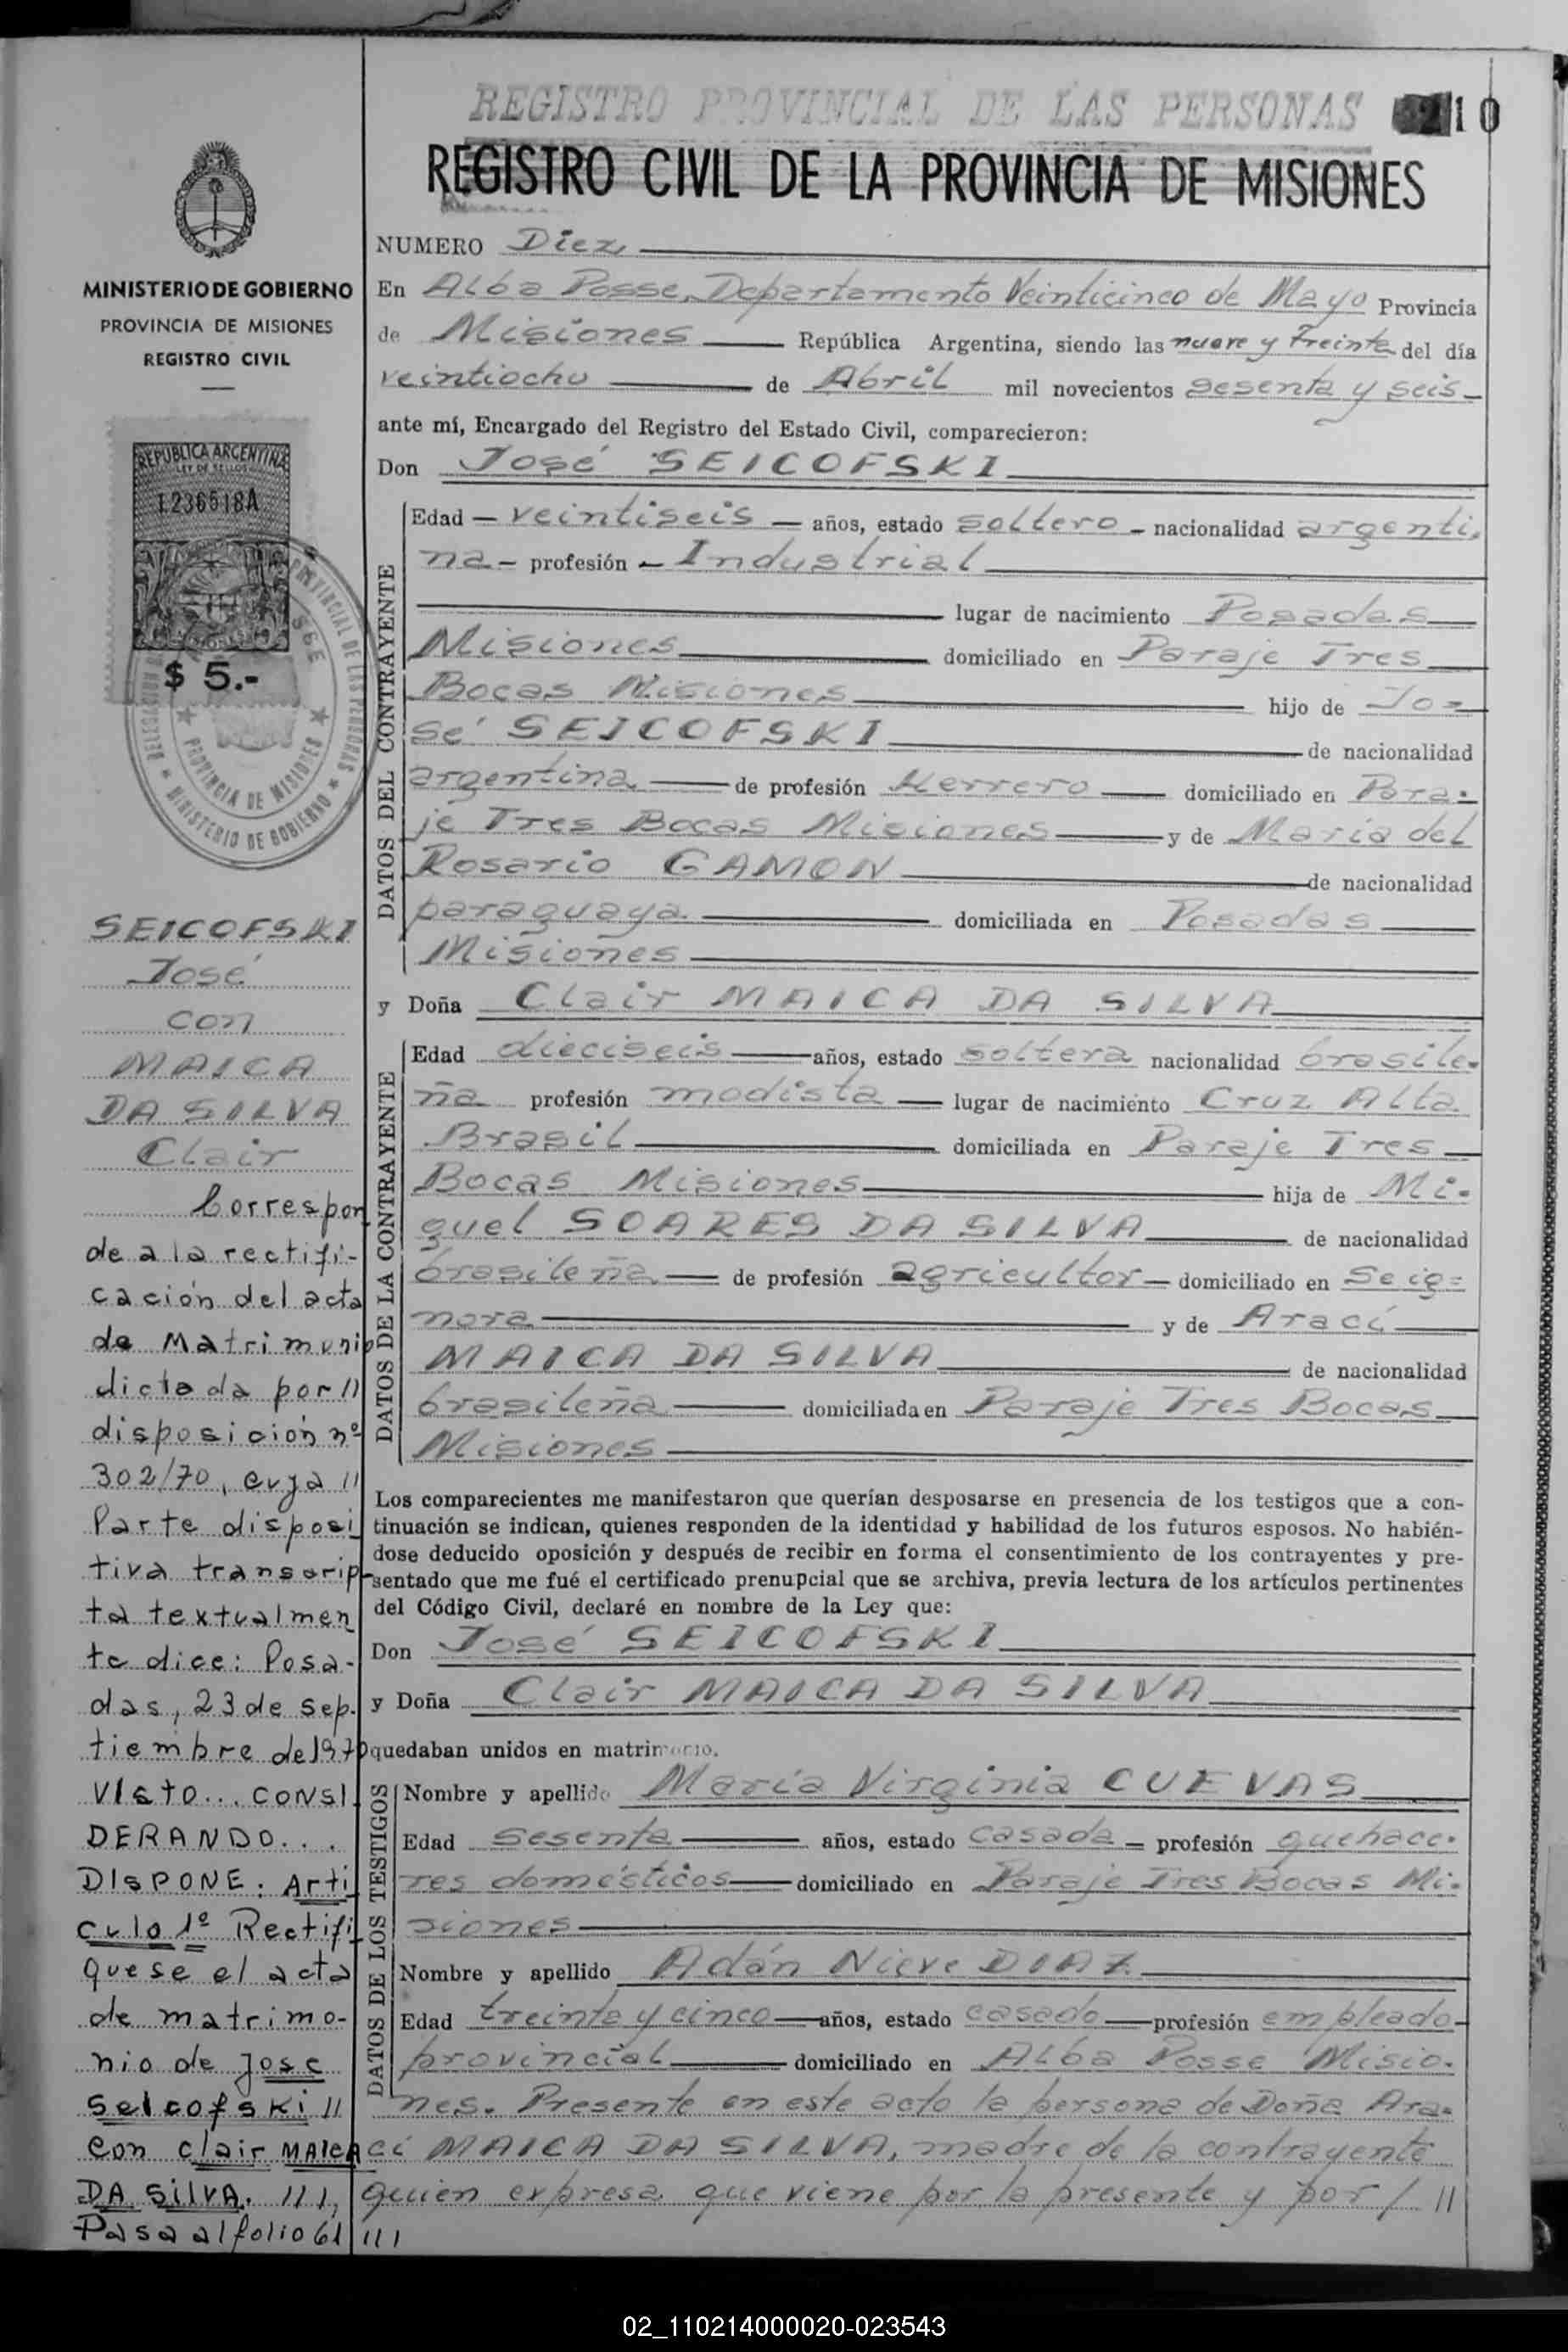 REGISTRO PROVINCIAL DE LAS PERSONAS 10
REGISTRO CIVIL DE LA PROVINCIA DE MISIONES
MINISTERIO DE GOBIERNO
PROVINCIA DE MISIONES
REGISTRO CIVIL
REPUBLICA ARGENTINA
LEY DE SELLOS
1236518A
$ 5.-
PROVINCIA DE MISIONES
MINISTERIO DE GOBIERNO
NUMERO Diez
En Alba Posse, Departamento Veinticinco de Mayo Provincia
de Misiones República Argentina, siendo las nueve y treinta del día
veintiocho de Abril mil novecientos sesenta y seis
ante mí, Encargado del Registro del Estado Civil, comparecieron:
Don José SEICOFSKI
DATOS DEL CONTRAYENTE
Edad - veintiseis - años, estado soltero - nacionalidad argenti-
na - profesión - Industrial
lugar de nacimiento Posadas
Misiones domiciliado en Paraje Tres
Bocas Misiones hijo de Jo=
sé SEICOFSKI de nacionalidad
argentina de profesión Herrero domiciliado en Para-
je Tres Bocas Misiones y de María del
Rosario GAMON de nacionalidad
paraguaya domiciliada en Posadas
Misiones
y Doña Clair MAICA DA SILVA
DATOS DE LA CONTRAYENTE
Edad dieciseis años, estado soltera nacionalidad brasile-
ña profesión modista lugar de nacimiento Cruz Alta
Brasil domiciliada en Paraje Tres
Bocas Misiones hija de Mi-
guel SOARES DA SILVA de nacionalidad
brasileña de profesión agricultor domiciliado en Se ig=
nora y de Arací
MAICA DA SILVA de nacionalidad
brasileña domiciliada en Paraje Tres Bocas
Misiones
Los comparecientes me manifestaron que querían desposarse en presencia de los testigos que a con-
tinuación se indican, quienes responden de la identidad y habilidad de los futuros esposos. No habién-
dose deducido oposición y después de recibir en forma el consentimiento de los contrayentes y pre-
sentado que me fué el certificado prenupcial que se archiva, previa lectura de los artículos pertinentes
del Código Civil, declaré en nombre de la Ley que:
Don José SEICOFSKI
y Doña Clair MAICA DA SILVA
quedaban unidos en matrimonio.
DATOS DE LOS TESTIGOS
Nombre y apellido María Virginia CUEVAS
Edad sesenta años, estado casada - profesión quehace-
res domésticos domiciliado en Paraje Tres Bocas Mi-
siones
Nombre y apellido Adán Nieve DIAZ
Edad treinta y cinco años, estado casado profesión empleado
provincial domiciliado en Alba Posse Misio-
nes. Presente en este acto la persona de Doña Ara-
cí MAICA DA SILVA, madre de la contrayente
quien expresa que viene por la presente y por / //
SEICOFSKI
José
con
MAICA
DA SILVA
Clair
Correspon
de a la rectifi-
cación del acta
de Matrimonio
dictada por //
disposición nº
302/70, cuya //
Parte disposi
tiva transcrip-
ta textualmen
te dice: Posa-
das, 23 de Sep.
tiembre de 1970
VISTO... CONSI
DERANDO...
DISPONE: Artí
culo 1º Rectifi
quese el acta
de matrimo-
nio de Jose
Seicofski //
Con Clair MAICA
DA SILVA. ///,
Pasa al folio 61 ///
02_110214000020-023543